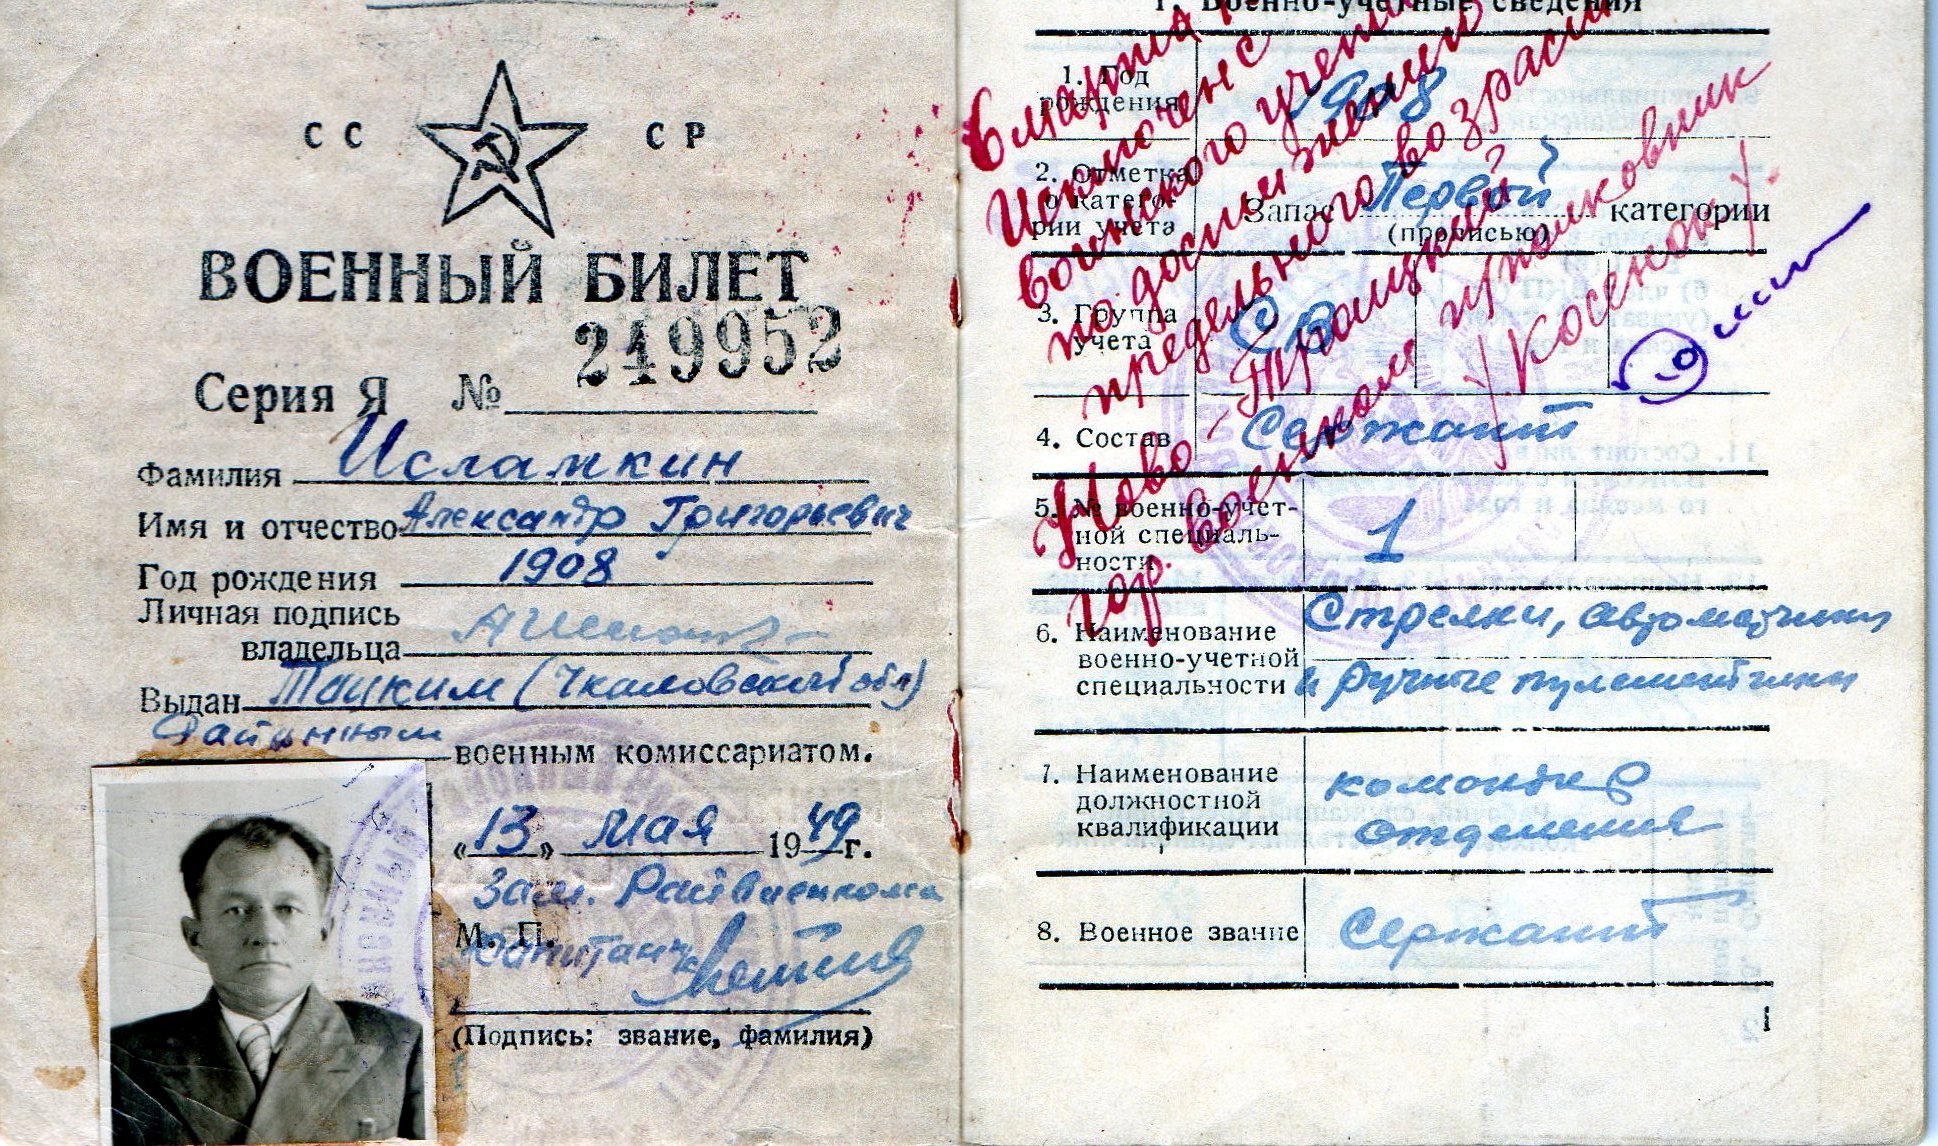 СС СР
ВОЕННЫЙ БИЛЕТ
Серия Я № 249952
Фамилия Исламкин
Имя и отчество Александр Григорьевич
Год рождения 1908
Личная подпись
владельца
Выдан (Чкаловской обл)
Районным
военным комиссариатом.
«13» мая 1949г.
Зам. Райвоенкома
М. П.
Капитан
(Подпись: звание, фамилия)
1. Военно-учетные сведения
1. Год
рождения 1908
2. Отметка
о катего-
рии учета
Запас Первой категории
(прописью)
3. Группа
учета СВ
4. Состав Сержант
5. № военно-учет-
ной специаль-
ности 1
6. Наименование
военно-учетной
специальности
Стрелки, автоматчики
и ручные пулеметчики
7. Наименование
должностной
квалификации
командир
отделения
8. Военное звание Сержант
1
Исключен с
воинского учета
по достижению
предельного возраста
Ново-Троицкий
гор. военком подполковник
/Косенок/